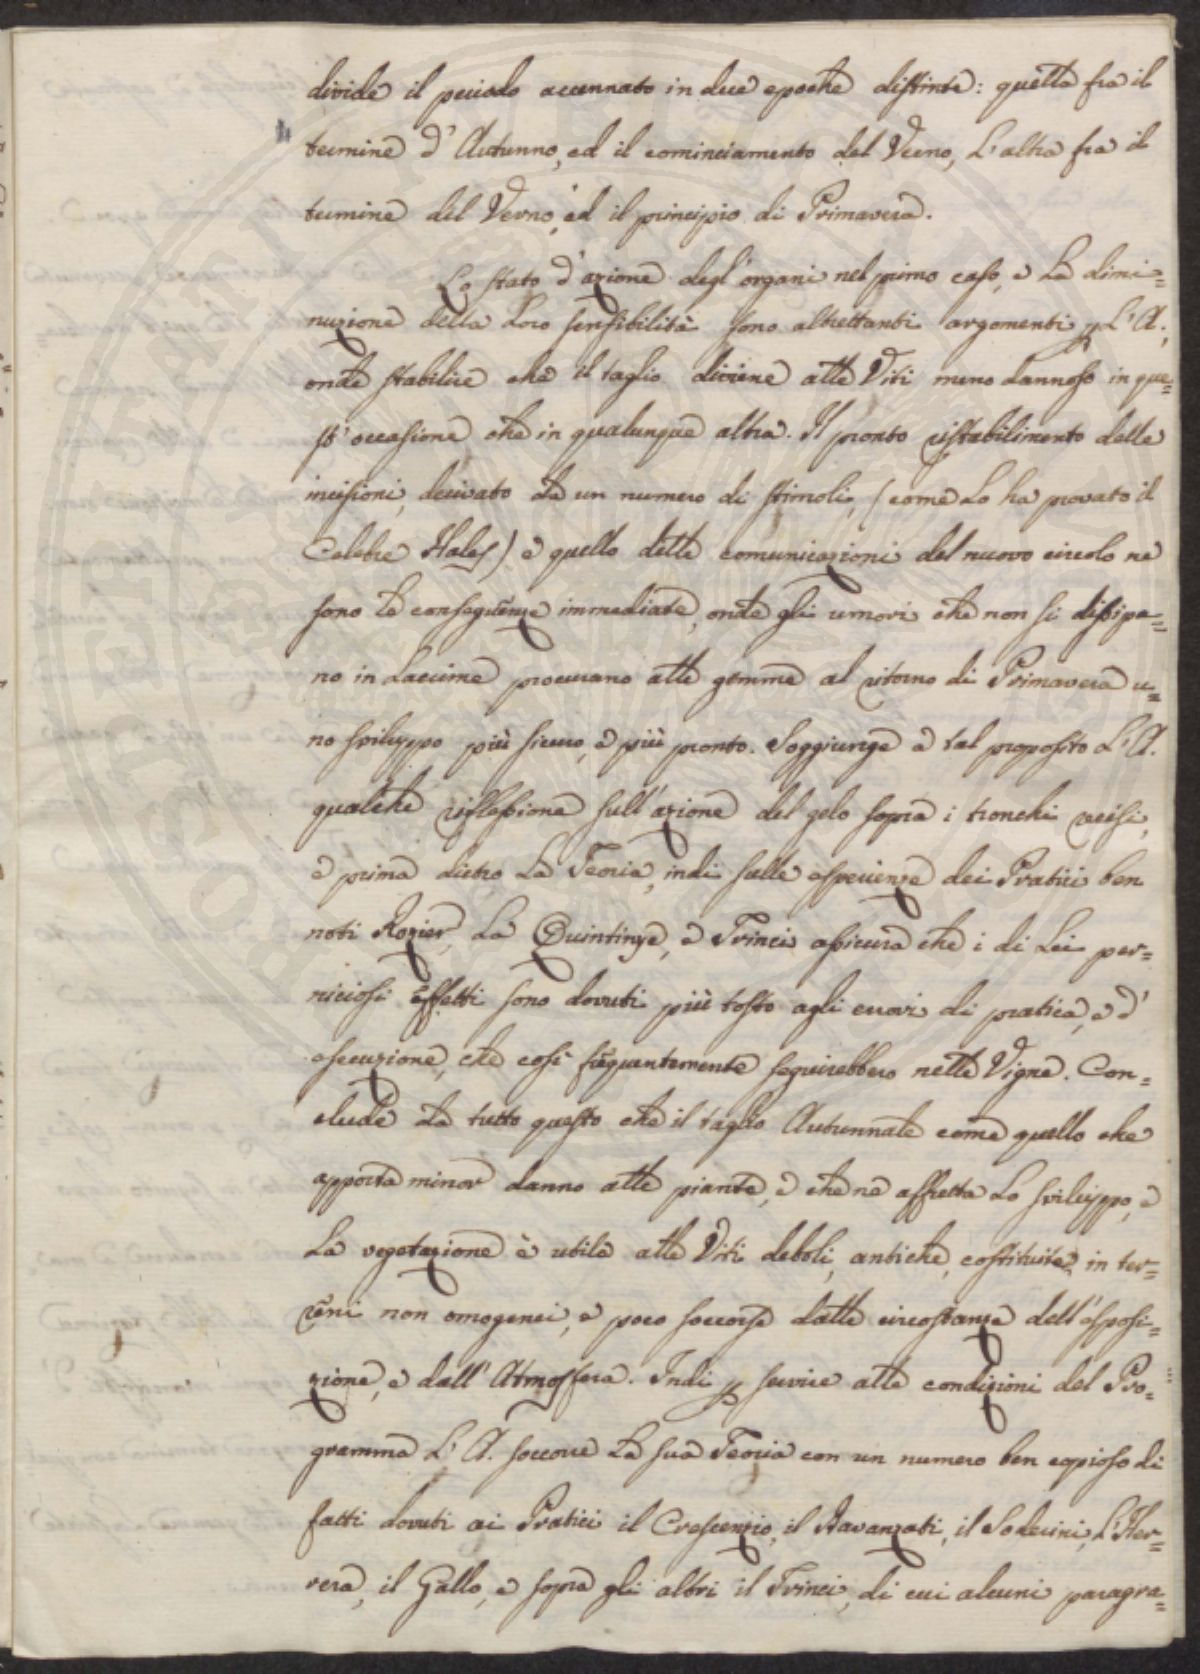 divide il periodo accennato in due epoche distinte: quella fra il
termine d' Autunno, ed il cominciamento del Verno, L'altra fra il
termine del Verno, ed il principio di Primavera.
Lo stato d'azione degl'organi nel primo caso, e La dimi=
nuzione della Loro sensibilità sono altrettanti argomenti p L'A.,
onde stabilire che il taglio diviene alle Viti meno dannoso in que=
st'occasione che in qualunque altra. Il pronto ristabilimento delle
incisioni, derivato da un numero di stimoli, (come Lo ha provato il
Celebre Hales) e quello delle comunicazioni del nuovo circolo ne
sono le conseguenze immediate, onde gli umori che non si dissipa=
no in Lacrime procurano alle gemme al ritorno di Primavera u=
no sviluppo più sicuro, e più pronto. Soggiunge a tal proposito L'A.
qualche riflessione sull'azione del gelo sopra i tronchi recisi,
e prima dietro La Teoria, indi sulle esperienze dei Pratici ben
noti Rozier, La Quintinye, e Trinci assicura che i di Lei per=
niciosi effetti sono dovuti più tosto agli errori di pratica, e d'
esecuzione, che così frequentemente seguirebbero nelle Vigne. Con=
clude da tutto questo che il taglio Autunnale come quello che
apporta minor danno alle piante, e che ne affretta Lo sviluppo, e
La vegetazione è utile alle Viti deboli, antiche, costituite in ter=
reni non omogenei, e poco soccorse dalle circostanze dell'esposi=
zione, e dall'Atmosfera. Indi p servire alle condizioni del Pro=
gramma L'A. soccorre La sua Teoria con un numero ben copioso di
fatti dovuti ai Pratici il Crescenzio, il Davanzati, il Soderini, L'Her=
rera, il Gallo, e sopra gli altri il Trinci, di cui alcuni paragra=